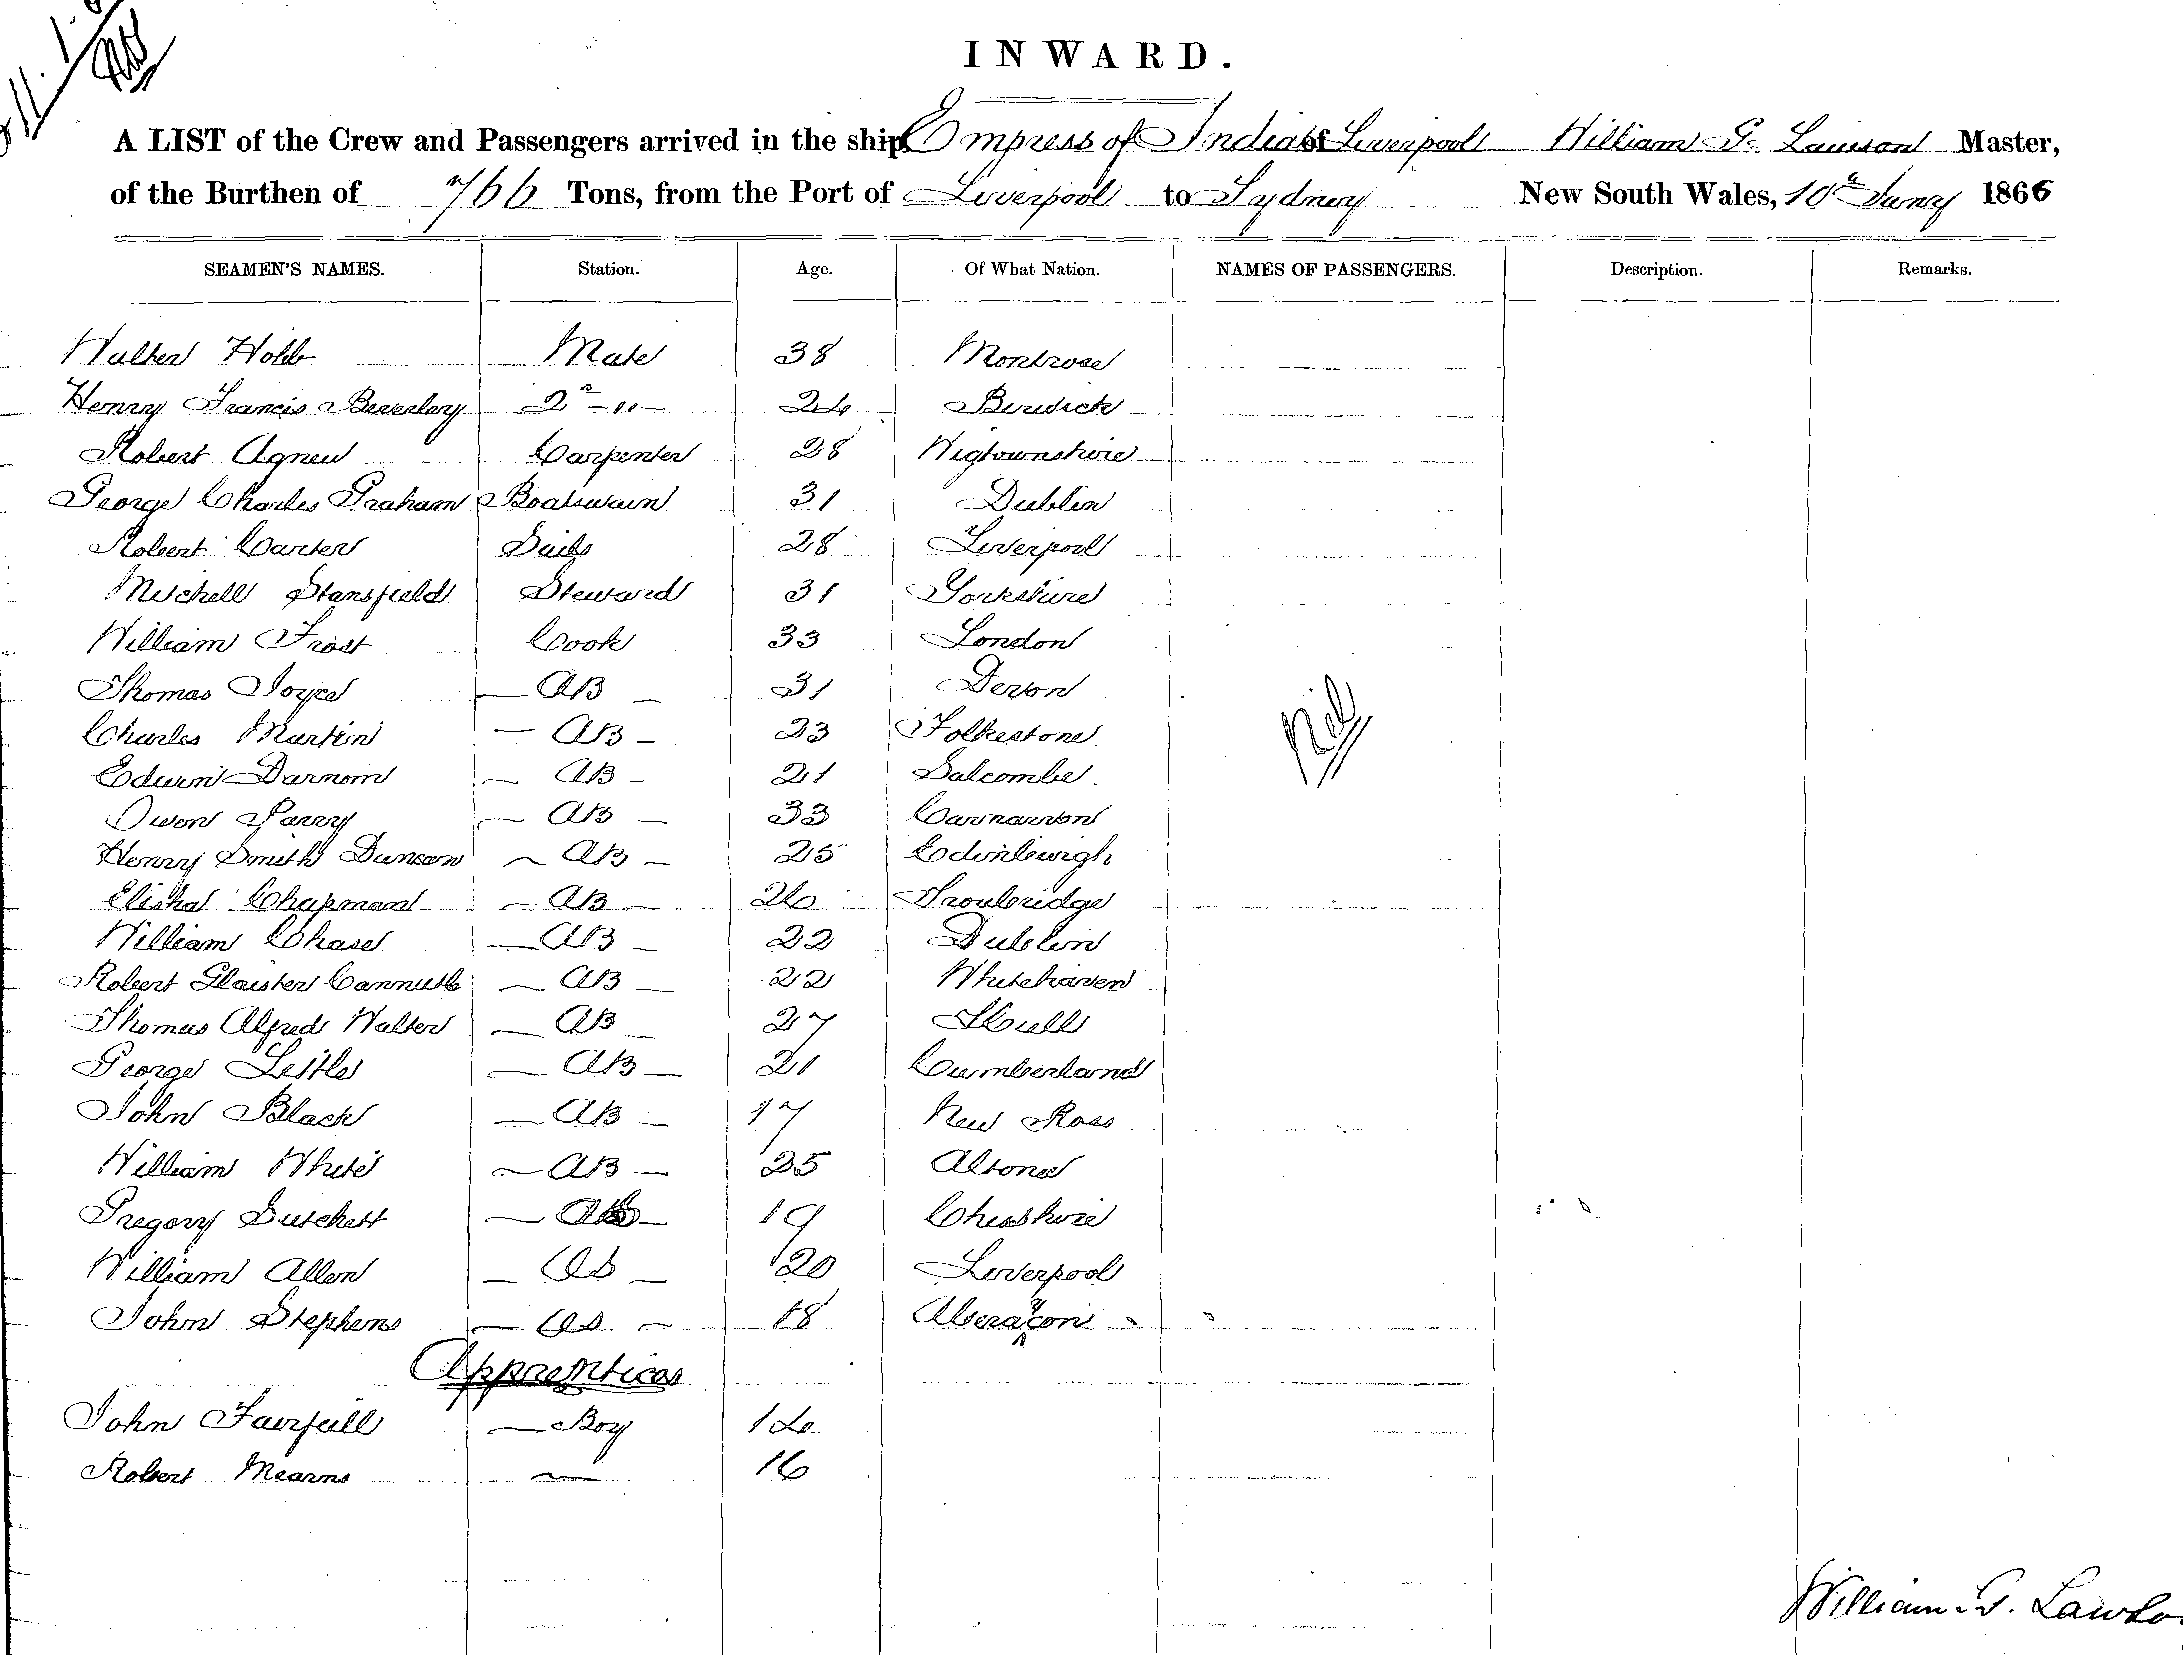 INWARD.
A LIST of the Crew and Passengers arrived in the ship Empress of India of Liverpool William G. Lawson Master,
of the Burthen of 766 Tons, from the Port of Liverpool to Sydney New South Wales, 10th Jany 1866
SEAMEN'S NAMES. Station. Age. Of What Nation. NAMES OF PASSENGERS. Description. Remarks.
Walter Hobb Mate 38 Montrose
Henry Francis Beverley 2nd -"- 24 Berwick
Robert Agnew Carpenter 28 Wigtownshire
George Charles Graham Boatswain 31 Dublin
Robert Carter Sails 28 Liverpool
Mitchell Stansfield Steward 31 Yorkshire
William Frost Cook 33 London
Thomas Joyce — AB — 31 Devon
Charles Martin — AB — 23 Folkestone
Edwin — AB — 21 Salcombe
Owen Parry — AB — 33 Carnarvon
Henry Smith Duncan — AB — 25 Edinburgh
Elisha Chapman — AB — 26 Trowbridge
William Chase — AB — 22 Dublin
Robert Glaister — AB — 22 Whitehaven
Thomas Alfred Walter — AB — 27 Hull
George Little — AB — 21 Cumberland
John Black — AB — 17 New Ross
William White — AB — 25 Altona
Gregory — 19 Cheshire
William Allen — OS — 20 Liverpool
John Stephens — OS — 18
Nil
Apprentices
John — Boy 16
Robert Mearns — 16
William G. Lawso